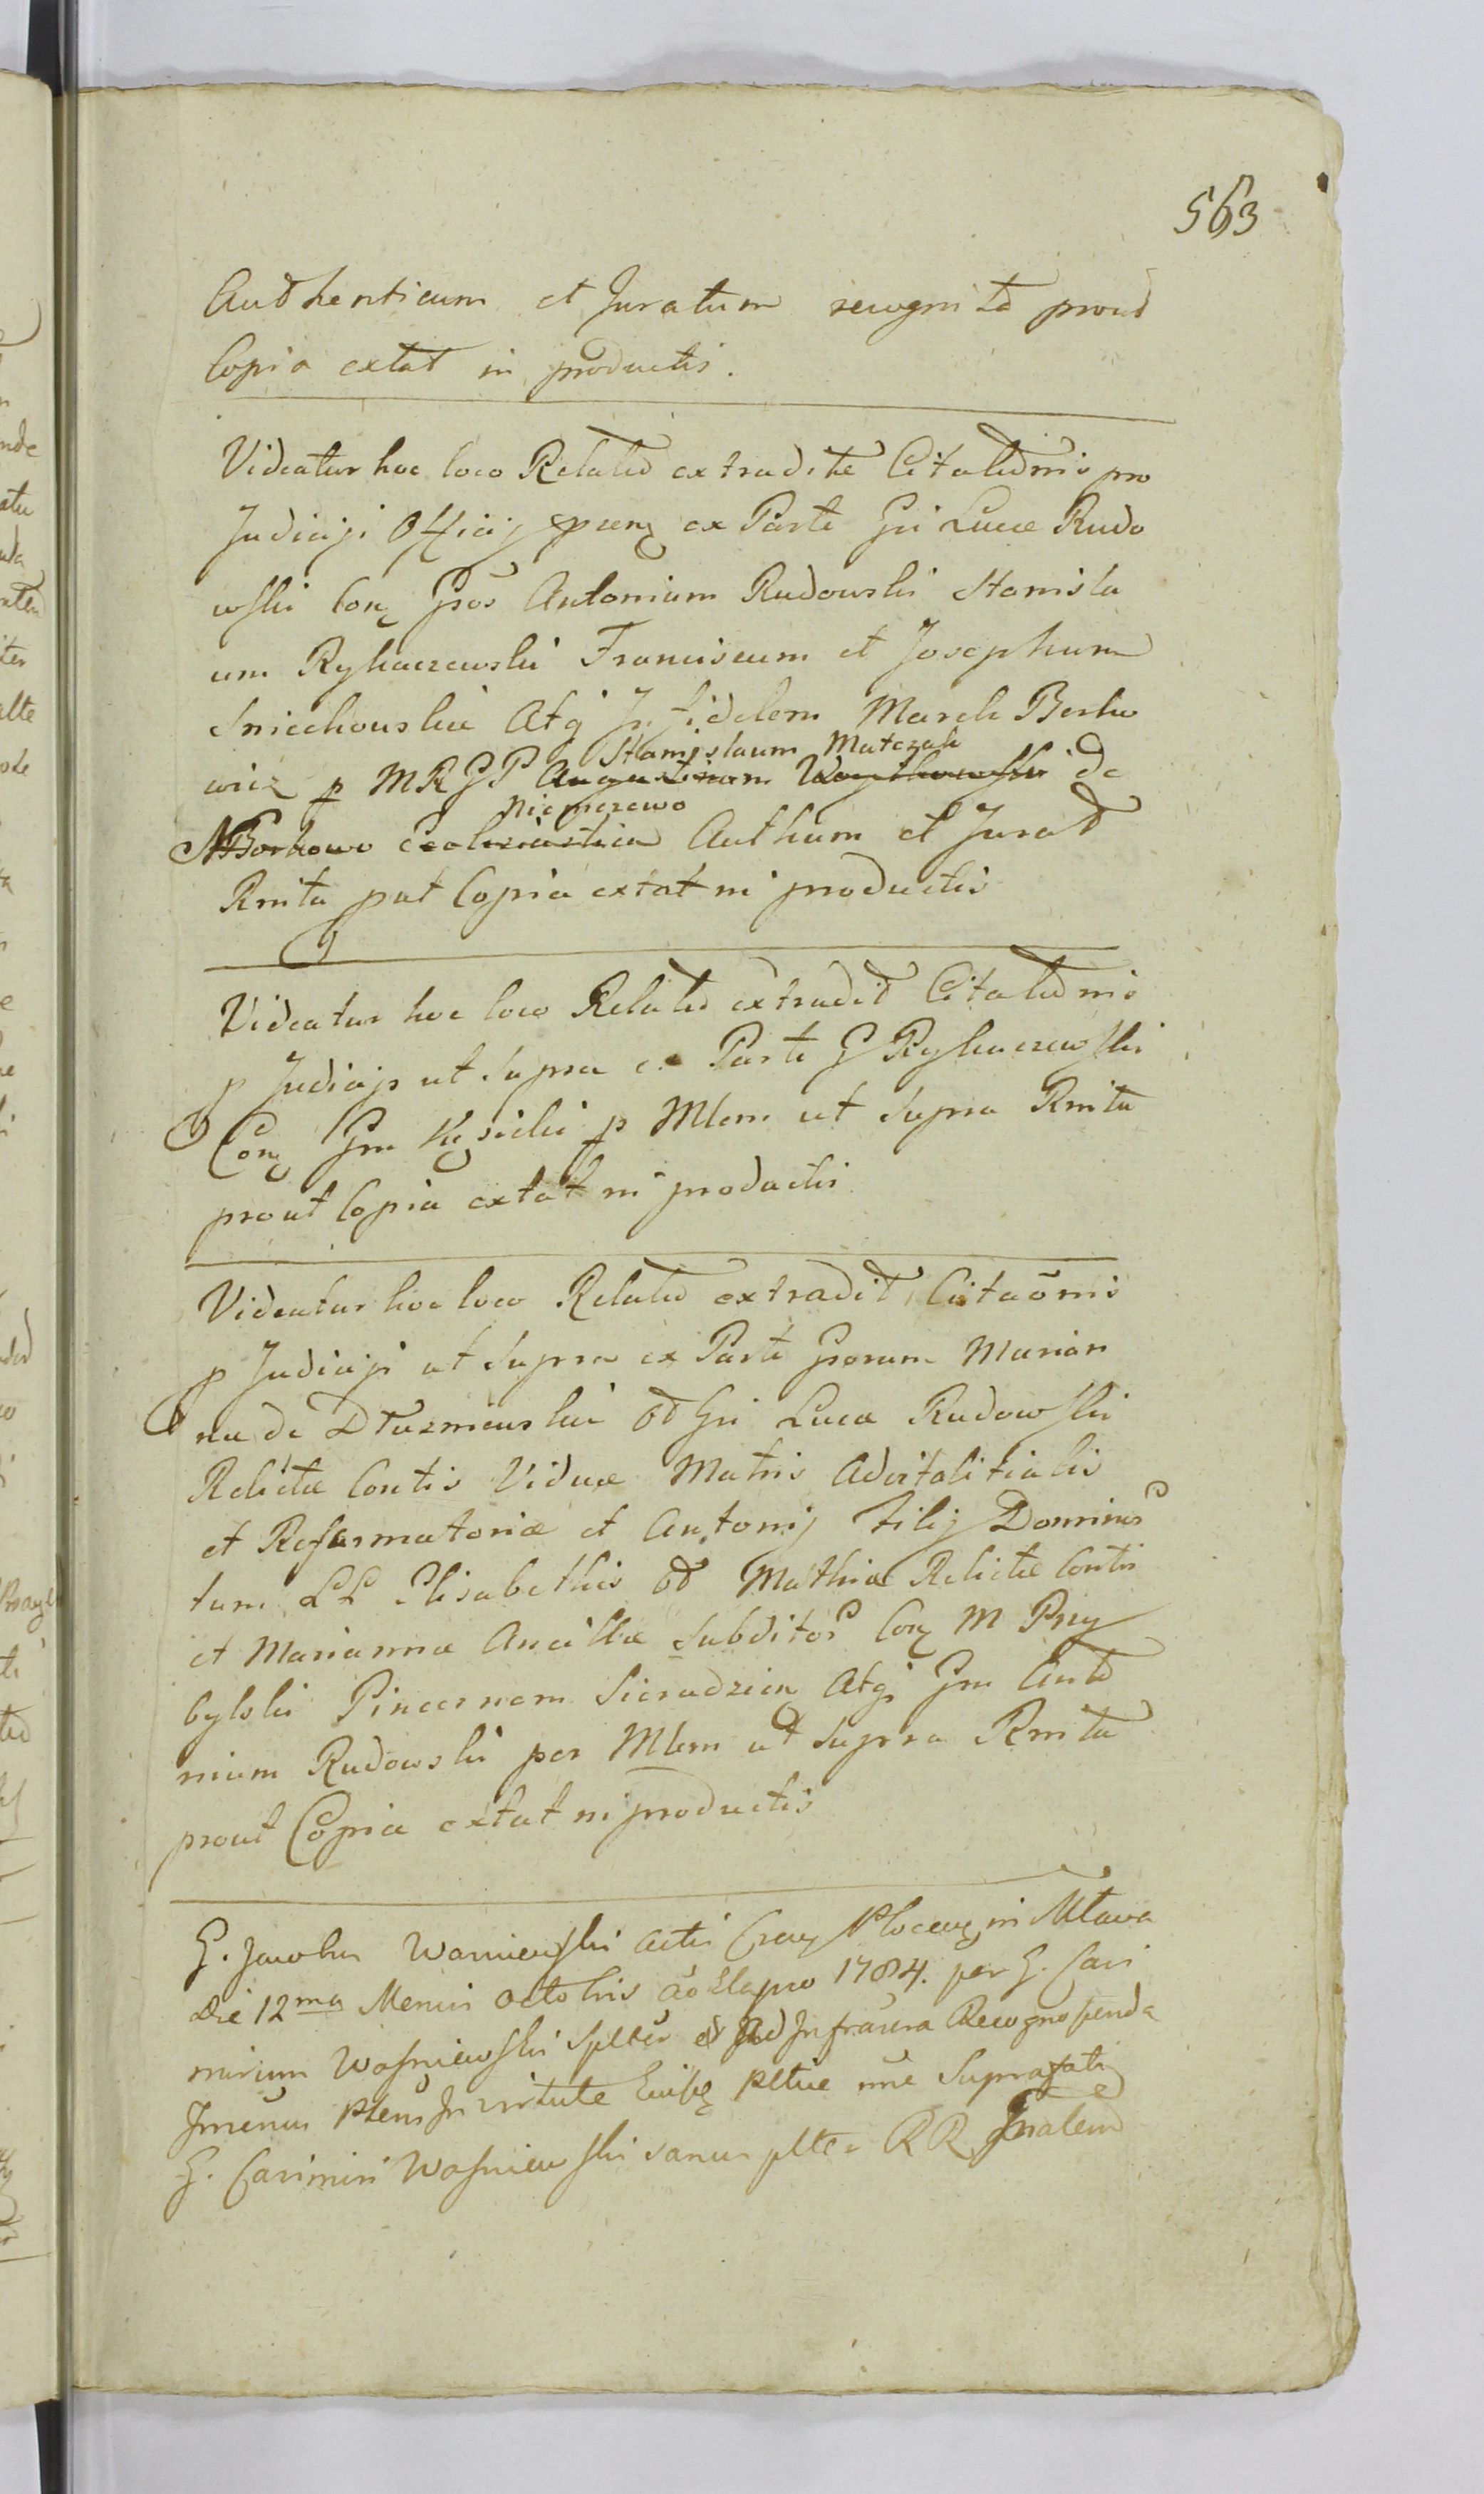 563
Authenticum et Juratum recognita prout
Copia extat in productis.
Videatur hoc loco Relatio extraditae Citationis pro
Judicijs Officij ex Parte Gsi Lucae Rudo
wski Con Gsos Antonium Rudowski Stanisla
um Rykaczewski Franciscum et Josephum
Sniechouskie Atq Infidelem Marek Berko
Stanislaum Matczak
wicz p MRGP Augustinum de
Niemczewo
N Borkowo Ecclesiastica Authum et Jurat
Rnita put Copia extat in productis
Videatur hoc loco Relatio extradit Citationis
p Judicijs ut supra ex Parte G Rykaczewski
Con Gm p Mlem ut Supra Rnita
prout Copia extat in productis
Videatur hoc loco Relatio extradit Citaõnis
p Judicijs ut Supra ex Parte Gsorum Marian
nae de Dłuzniewskie Gsi Lucae Rudowski
Relictae Contis Viduae Matris Advitalitialis
et Reformatoriae et Antonij Filij Dominor
tum LL Elisabethis Mathiae Relictae Contis
et Mariannae Ancillae Subditor Con M Przy
bylski Pincernam Sieradzien Atq Gm Anto
nium Rudowski per Mlem ut Supra Rnita
prout Copia extat in productis
G. Jacobus Wasniewski actis Cren Plocen in Mława
die 12ma Mensis Octobris Aõ Elapso 1784. per G. Casi
mirum Wasniewski Spltēr Ad Infrascra Recognoscenda
In virtute pltiae Suprafati
G. Casimiri Wasniewski sanus plte RR